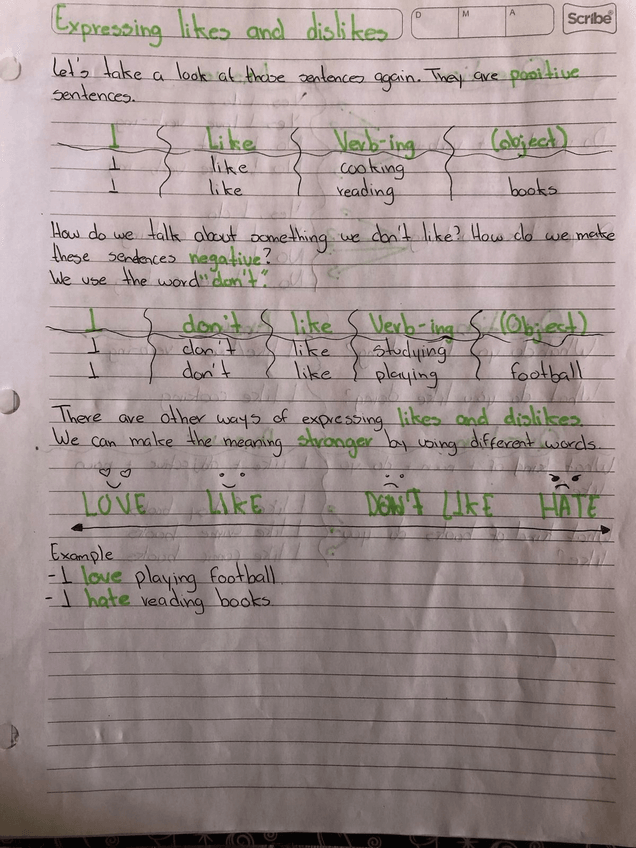 Expressing likes and dislikes
D M A
Scribe®
Let's take a look at those sentences again. They are positive
sentences.
I Like Verb-ing (object)
I like cooking
I like reading books
How do we talk about something we don't like? How do we make
these sentences negative?
We use the word "don't".
I don't like Verb-ing (Object)
I don't like studying
I don't like playing football
There are other ways of expressing likes and dislikes.
We can make the meaning stronger by using different words.
LOVE LIKE DON'T LIKE HATE
Example
-I love playing football
-I hate reading books.